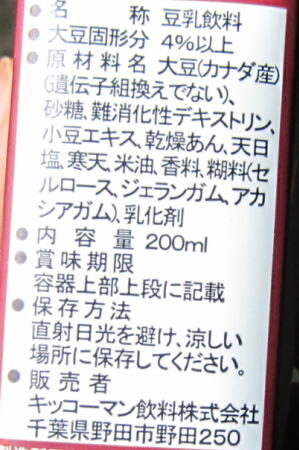 ● 名　　称 豆乳飲料
● 大豆固形分 4%以上
● 原材料名 大豆(カナダ産)
(遺伝子組換えでない)、
砂糖、難消化性デキストリン、
小豆エキス、乾燥あん、天日
塩、寒天、米油、香料、糊料(セ
ルロース、ジェランガム、アカ
シアガム)、乳化剤
● 内 容 量 200ml
● 賞味期限
容器上部上段に記載
● 保存方法
直射日光を避け、涼しい
場所に保存してください。
● 販 売 者
キッコーマン飲料株式会社
千葉県野田市野田250